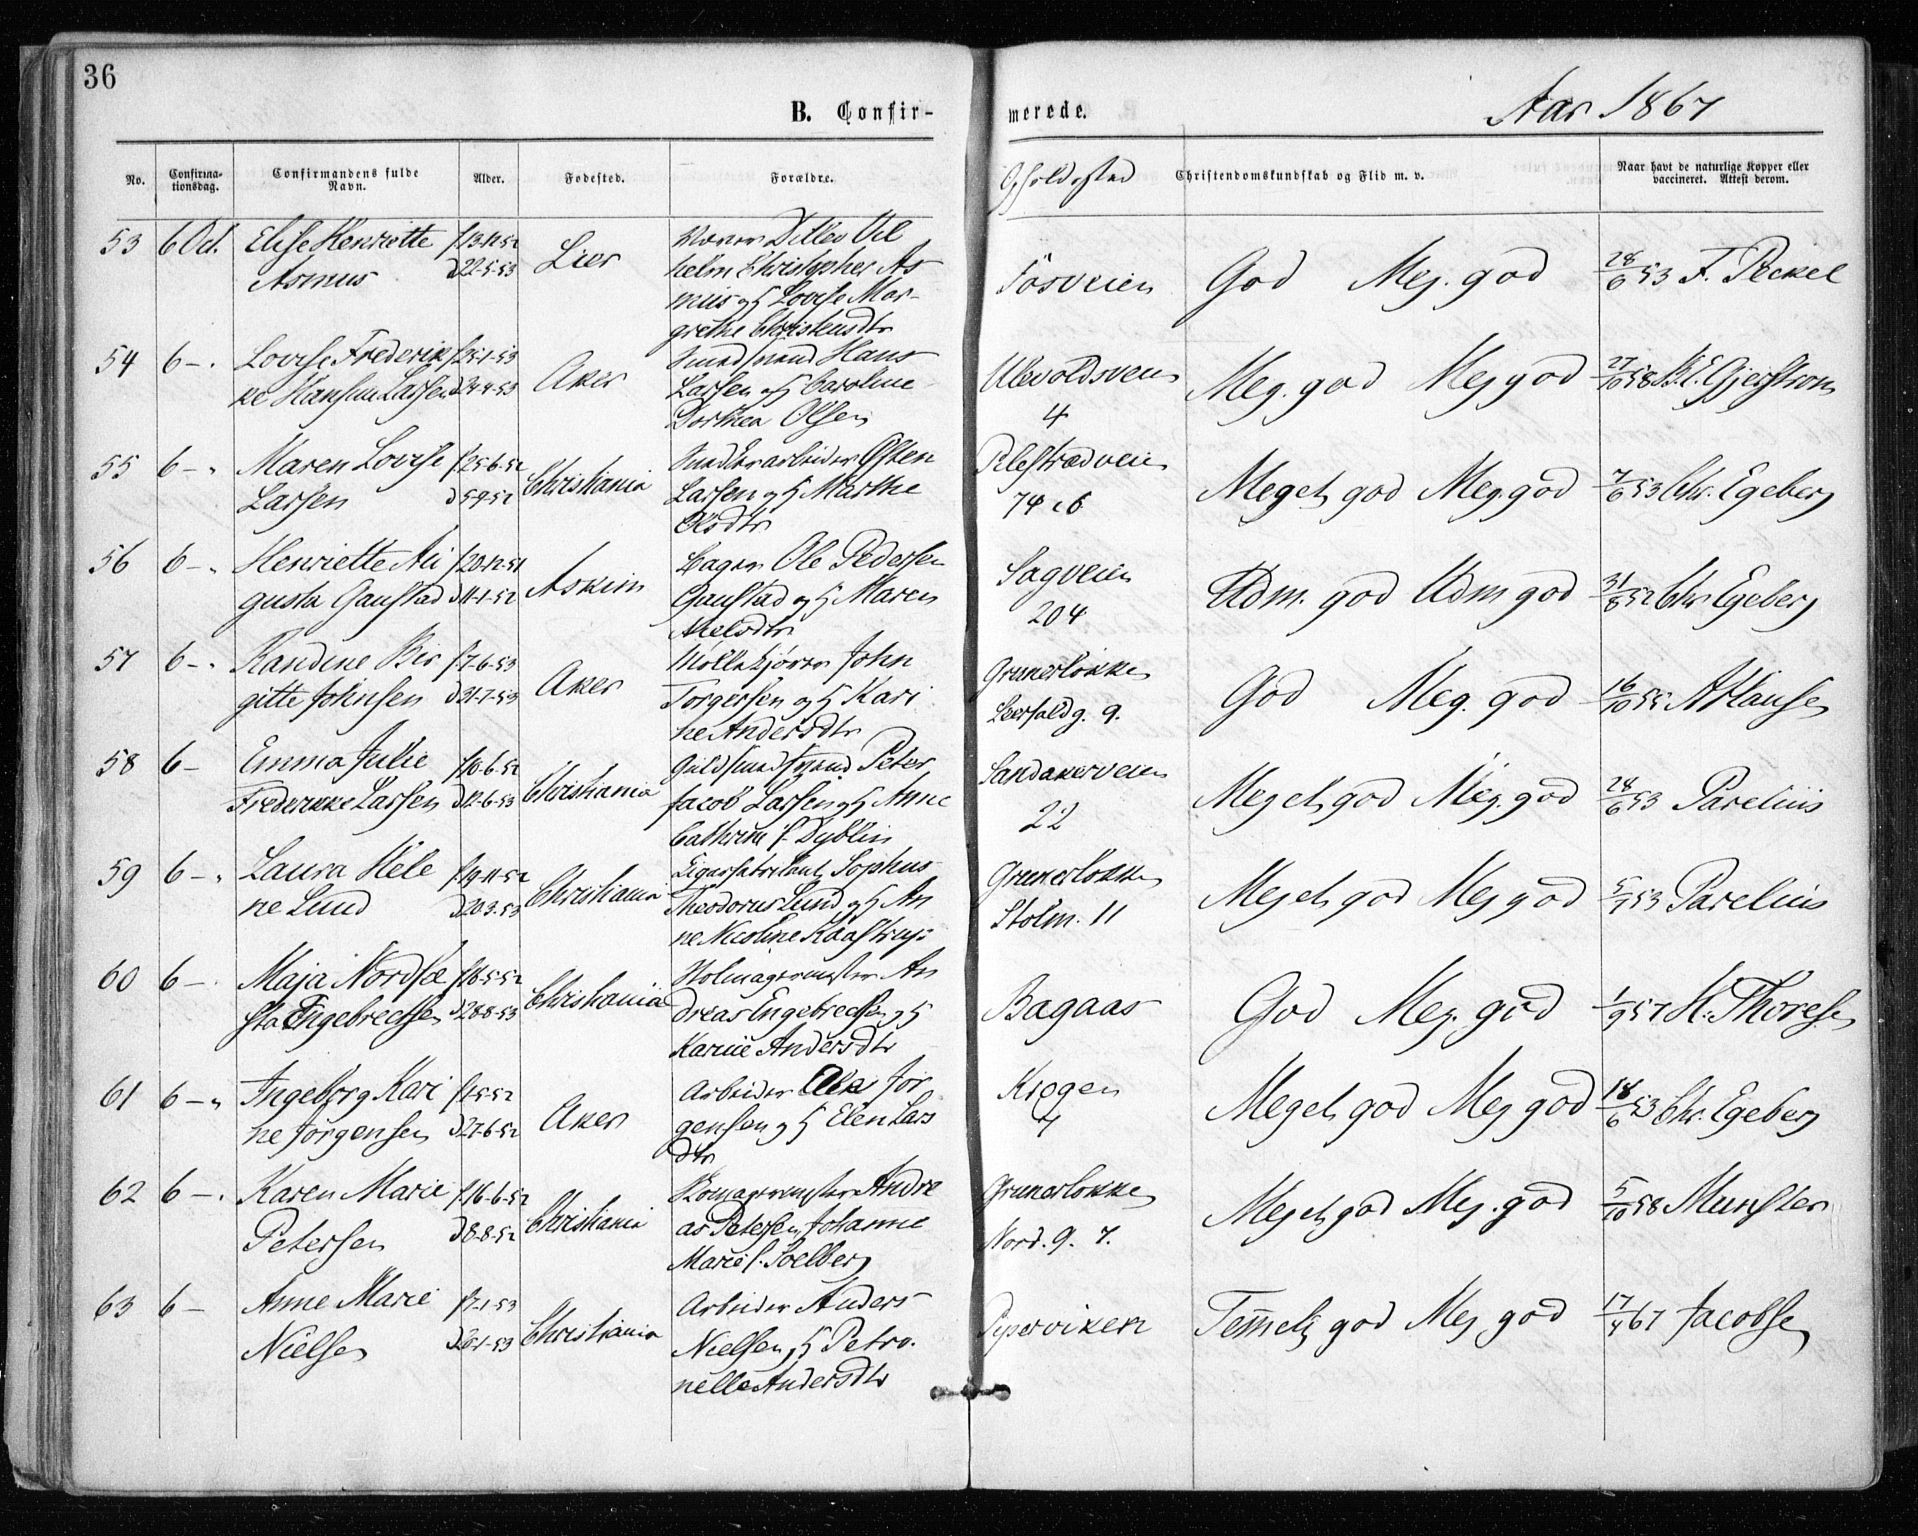 36
B. Confir-
merede.
Aar 1867
No.
Confirma-
tionsdag.
Confirmandens fulde
Navn.
Alder.
Fødested.
Forældre.
Opholdssted
Christendomskundskab og Flid m. v.
Naar havt de naturlige Kopper eller
vaccineret. Attest derom.
53 6 Oct. Elise Henriette f13-11-52 Lier Ditlev Vil
Asmus d22-5-53 helm Christopher As
mus og H Lovise Mar-
grethe Christensdtr
Tøsveien God Meg. god 28/6 53 F. Peckel
54 6 -. Lovise Frederik f25-1-53 Aker Smedsvend Hans
ke Hansine Larsen d24-4-53 Larsen og H Caroline
Dorthea Olsen
Ulevoldsveien Meg. god Meg god 27/10 58 Gjerstrøm
4
55 6 -. Maren Lovise f25-6-52 Christiania Østen
Larsen d5-9-52 Larsen og H Marthe
Olsdtr
Pilestrædveien Meget god Meg. god 7/6 53 Chr. Egeberg
74 c 6
56 6 -. Henriette Au f20-12-51 Askim Ole Pedersen
gusta Gaustad d11-1-52 Gaustad og H Maren
Nielsdtr
Sagveien Udm. god Udm god 31/8 52 Chr Egeberg
204
57 6 -. Randine Bir f7-6-53 Aker Møllekjører John
gitte Johnsen d31-7-53 Torgersen og H Kari
ne Andersdtr
Grunerløkken God Meg. god 16/10 55 A Hansen
Leerfaldg. 9.
58 6 - Emma Julie f10-6-52 Christiania Guldsmedsvend Peter
Frederikke Larsen d12-6-53 Jacob Larsen og H Anne
Cathrine f. Dyblin
Sandakerveien Meget god Meg. god 28/6 53 Parelius
22
59 6 -. Laura Hele f19-11-52 Christiania Cigarfabrikant Sophus
ne Lund d20-3-53 Theodorus Lund og H An
ne Nicoline Kaastrup
Grunerløkken Meget god Meg god 5/7 53 Parelius
Stolm. 11
60 6 -. Maja Nordsæ f16-5-52 Christiania Stolmagermester An
sta Engebretsen d28-8-53 dreas Engebretsen og H
Karine Andersdtr
Bagaas God Meg. god 1/9 57 H. Thoresen
61 6 -. Ingeborg Kari f1-5-52 Aker Arbeider Jør
ne Jørgensen d27-6-52 gensen og H Elen Lars
dtr
Krogen Meget god Meg god 18/6 53 Chr. Egeberg
4
62 6 -. Karen Marie f16-6-52 Christiania Skomagermester Andre
Petersen d8-8-52 as Petersen Johanne
Marie f. Soelberg
Grunerløkken Meget god Meg. god 5/10 58 Munster
Nord. g. 7.
63 6 - Anne Marie f7-1-53 Christiania Arbeider Anders
Nielsen Nielsen og H Petro-
nelle Andersdtr
Piperviken Temelig god Meg god 17/4 67 Jacobsen